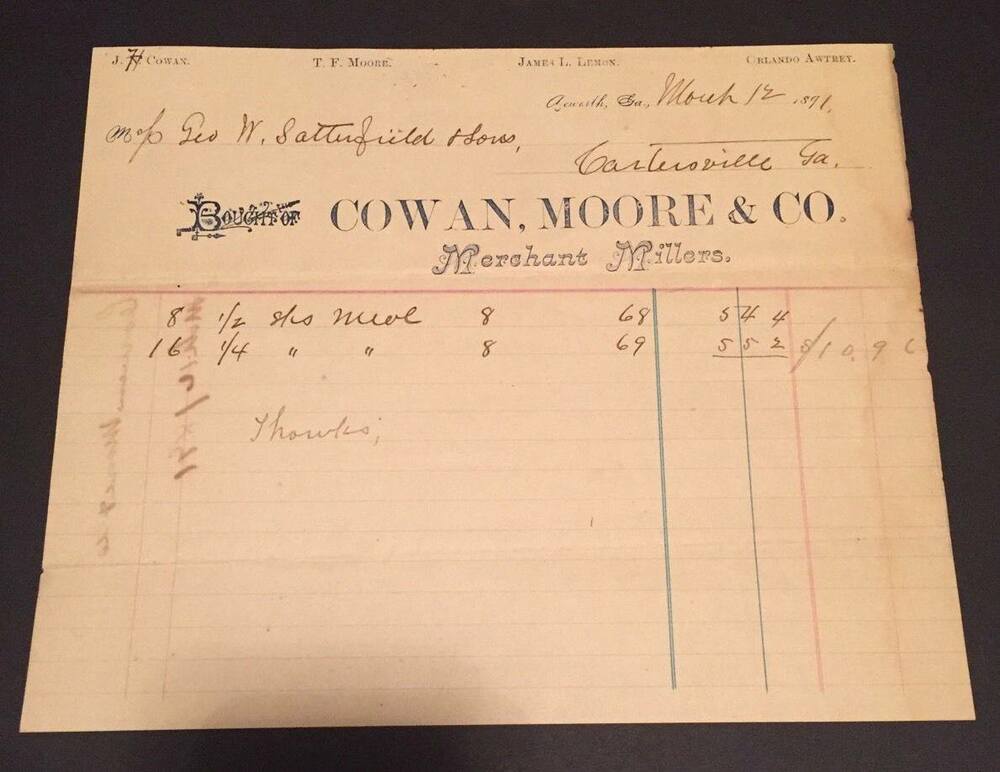 J. H. Cowan. T. F. Moore. James L. Lemon. Orlando Awtrey.
Acworth, Ga., March 12 1891,
Geo W. Satterfield & Sons,
Cartersville Ga.
Bought of COWAN, MOORE & CO.
Merchant Millers.
8 1/2 sks Meal 8 68 5 44
16 1/4 " " 8 69 5 52 $10.96
Thanks,